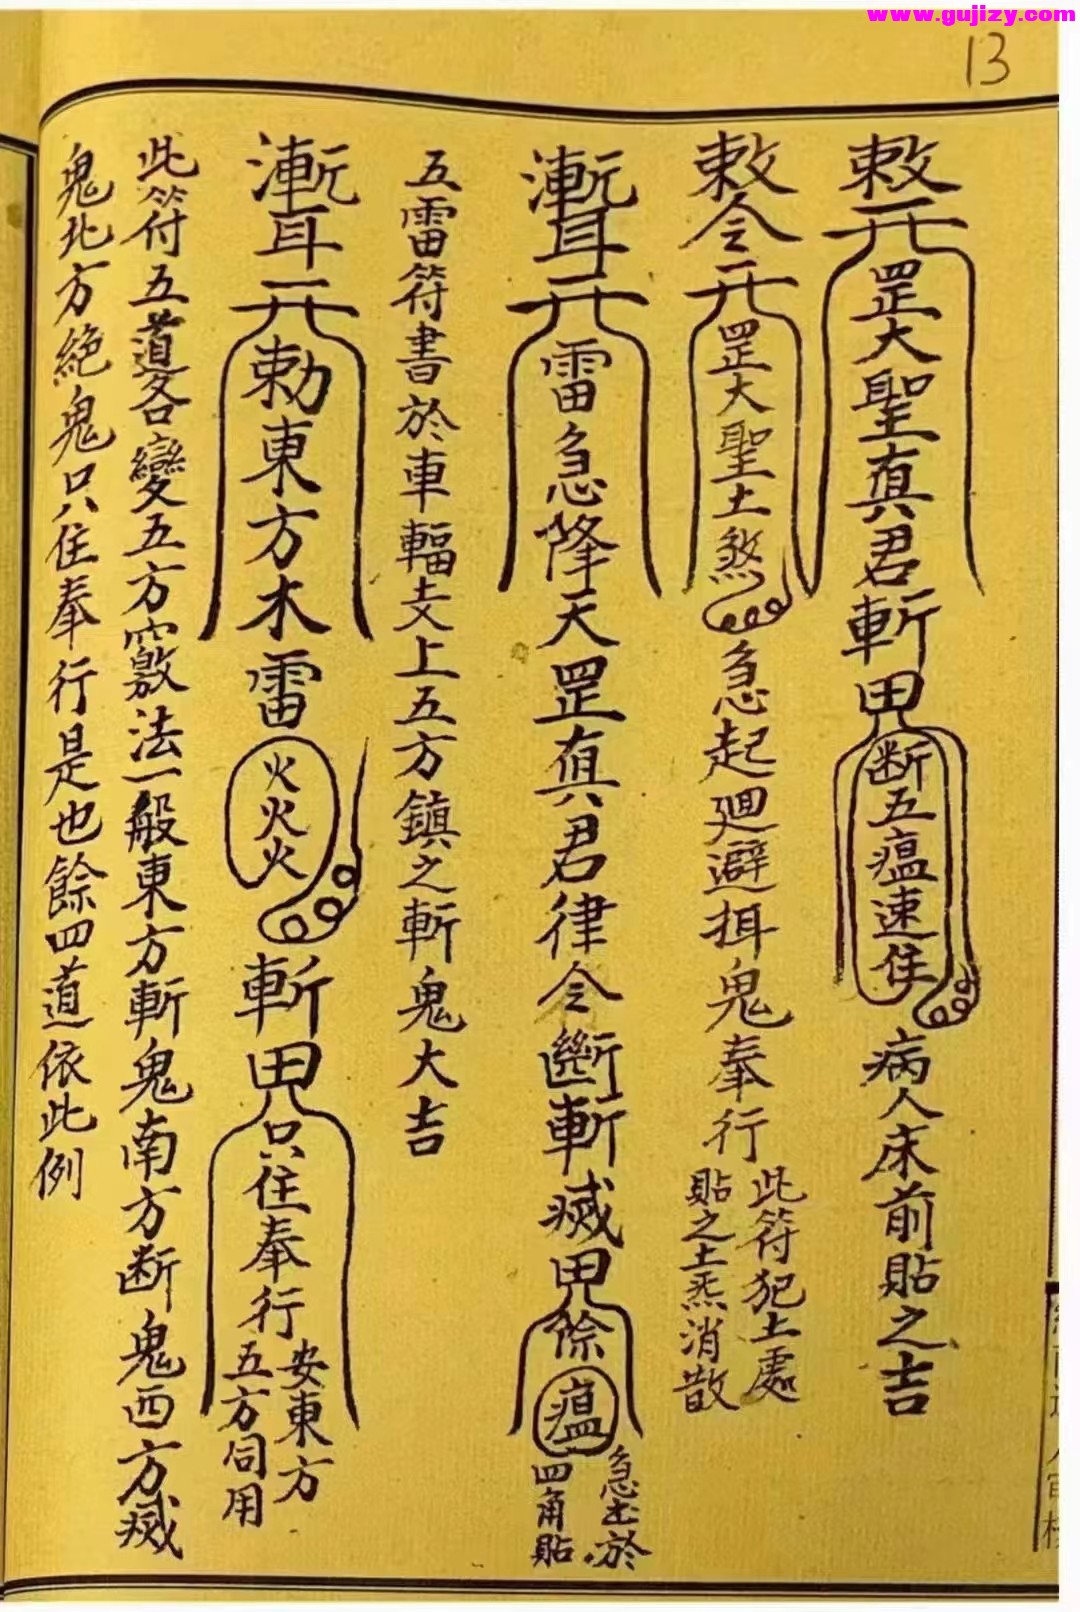 www.gujizy.com
13
敕罡大聖真君斬鬼断五瘟速住病人床前貼之吉
敕令罡大聖土煞急起廻避揖鬼奉行
此符犯土處
貼之土炁消散
雷急降天罡真君律令斷斬滅
瘟
急书於
四角貼
五雷符書於車輻支上五方鎮之斬鬼大吉
勅東方木雷火火火斬
只住奉行
安東方
五方同用
此符五道各變五方竅法一般東方斬鬼南方断鬼西方滅
鬼北方絕鬼只住奉行是也餘四道依此例